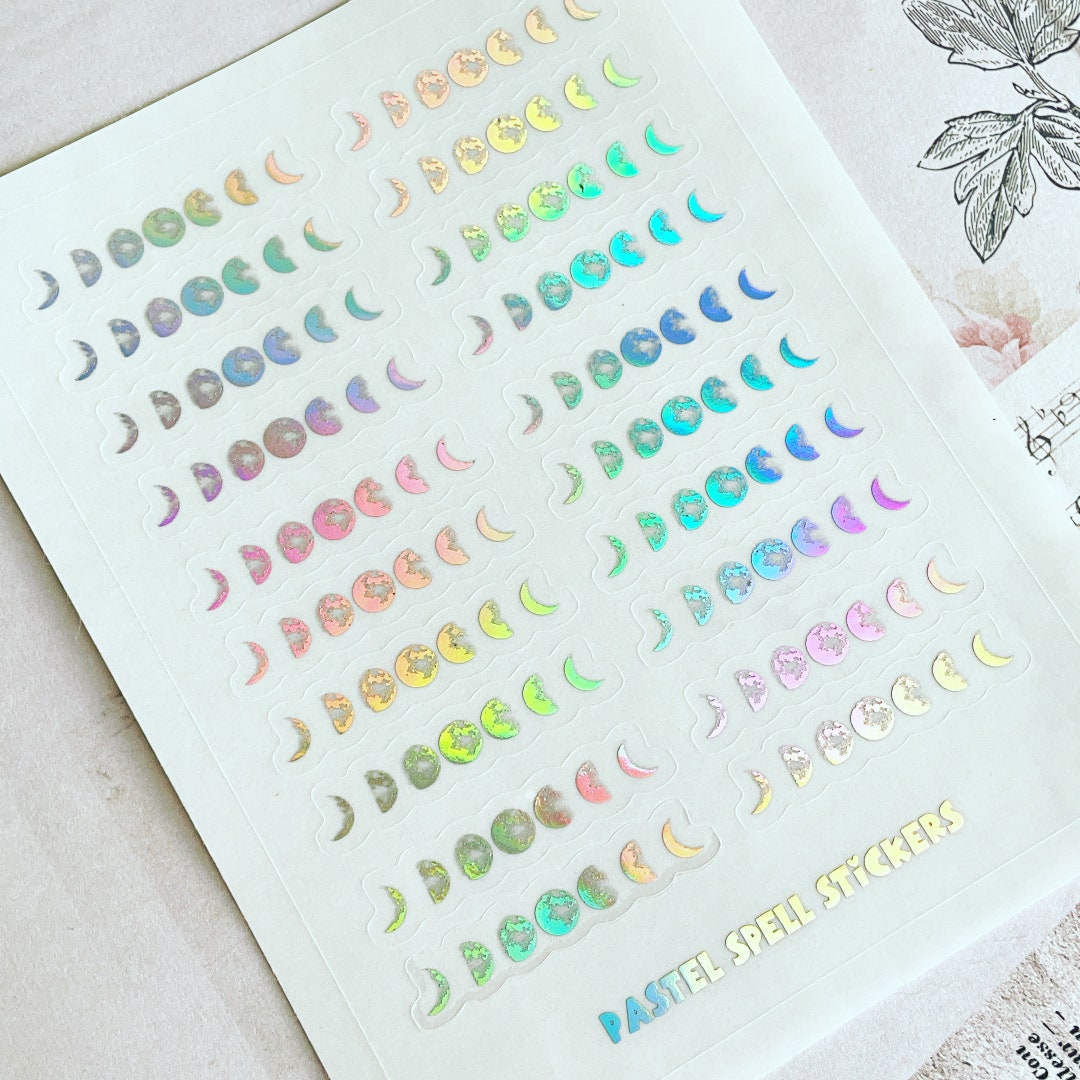 PASTEL SPELL STiCKERS
Con